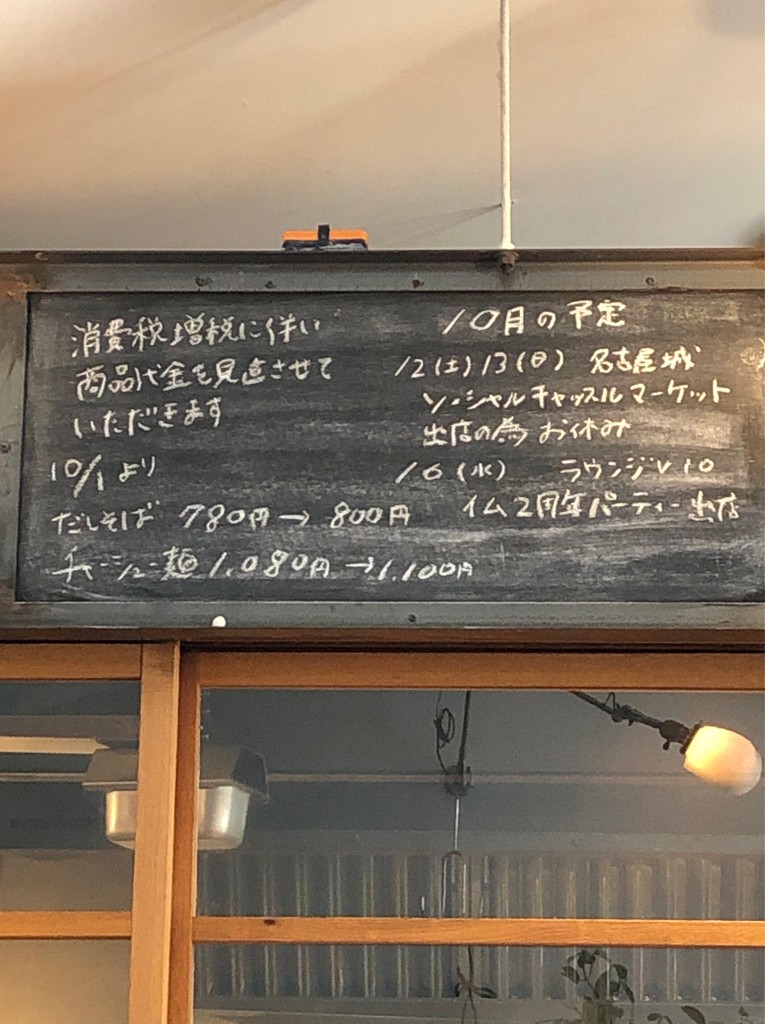 消費税増税に伴い
商品代金を見直させて
いただきます
10/1より
だしそば 780円→800円
チャーシュー麺 1.080円→1.100円
10月の予定
12(土)13(日) 名古屋城
ソーシャルキャッスルマーケット
出店の為お休み
16(水) ラウンジvio
イム2周年パーティー出店